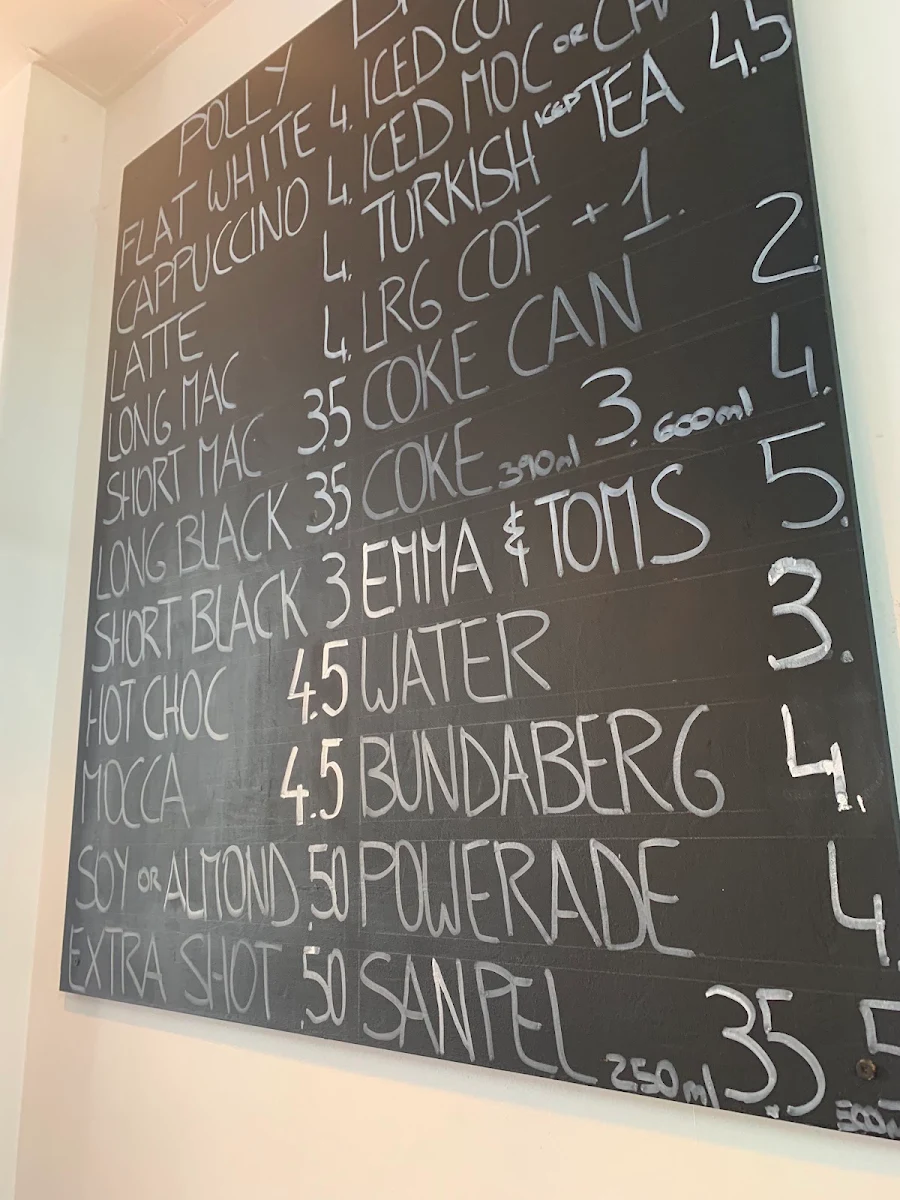 POLLY
FLAT WHITE 4.
CAPPUCCINO 4.
LATTE 4.
LONG MAC 4.
SHORT MAC 3.5
LONG BLACK 3.5
SHORT BLACK 3
HOT CHOC 4.5
MOCCA 4.5
SOY OR ALMOND .50
EXTRA SHOT .50
ICED
ICED MOC OR
TURKISH ICED TEA 4.5
LRG COF +1.
COKE CAN 2.
COKE 390ml 3. 600ml 4.
EMMA & TOMS 5.
WATER 3.
BUNDABERG 4.
POWERADE 4.
SANPEL 250ml 3.5